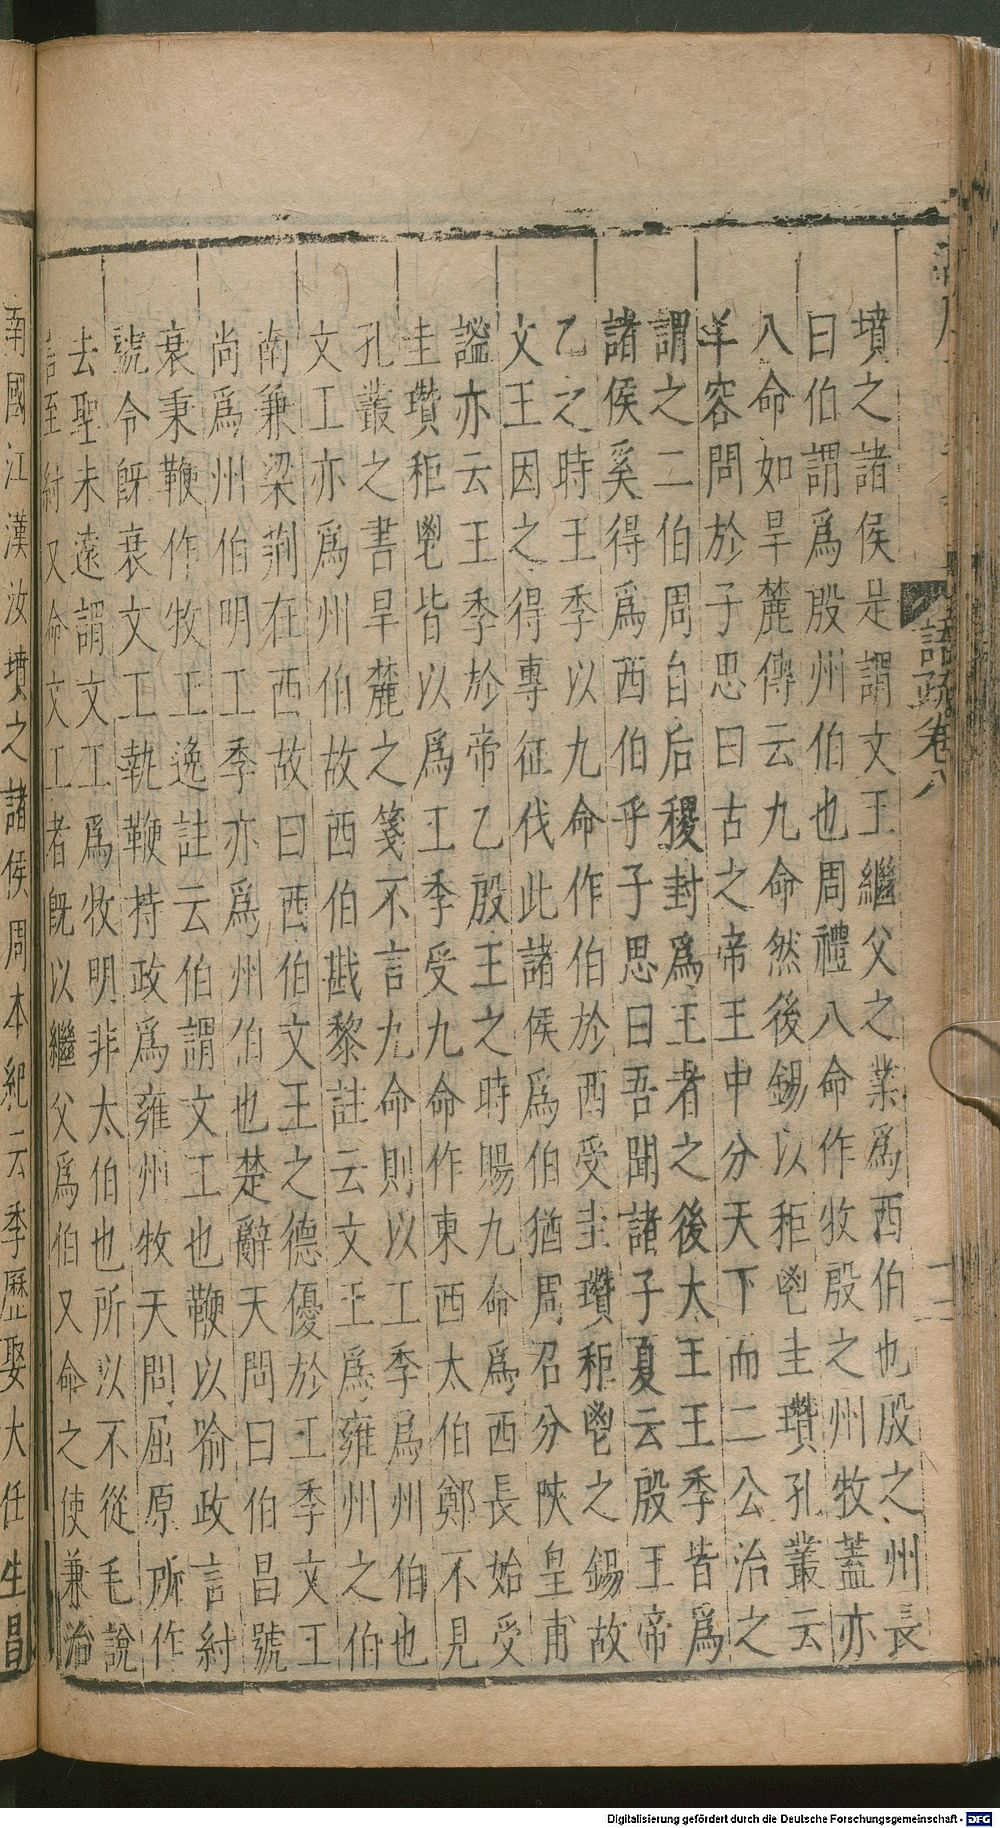 墳之諸侯是謂文王繼父之業爲西伯也殷之州長
曰伯謂爲殷州伯也周禮八命作牧殷之州牧蓋亦
八命如旱麓傳云九命然後錫以秬鬯圭瓚孔叢云
羊容問於子思曰古之帝王中分天下而二公治之
謂之二伯周自后稷封爲王者之後太王王季皆爲
諸侯奚得爲西伯乎子思曰吾聞諸子夏云殷王帝
乙之時王季以九命作伯於西受圭瓚秬鬯之錫故
文王因之得專征伐此諸侯爲伯猶周召分陝皇甫
謐亦云王季於帝乙殷王之時賜九命爲西長始受
圭瓚秬鬯皆以爲王季受九命作東西太伯鄭不見
孔叢之書旱麓之箋不言九命則以王季爲州伯也
文王亦爲州伯故西伯戡黎註云文王爲雍州之伯
南兼梁荊在西故曰西伯文王之德優於王季文王
尚爲州伯明王季亦爲州伯也楚辭天問曰伯昌號
衰秉鞭作牧王逸註云伯謂文王也鞭以喻政言紂
號令旣衰文王執鞭持政爲雍州牧天問屈原所作
去聖未遠謂文王爲牧明非太伯也所以不從毛說
言至紂又命文王者旣以繼父爲伯又命之使兼治
南國江漢汝墳之諸侯周本紀云季歷娶大任生昌
詩疏卷八
十二
Digitalisierung gefördert durch die Deutsche Forschungsgemeinschaft - DFG